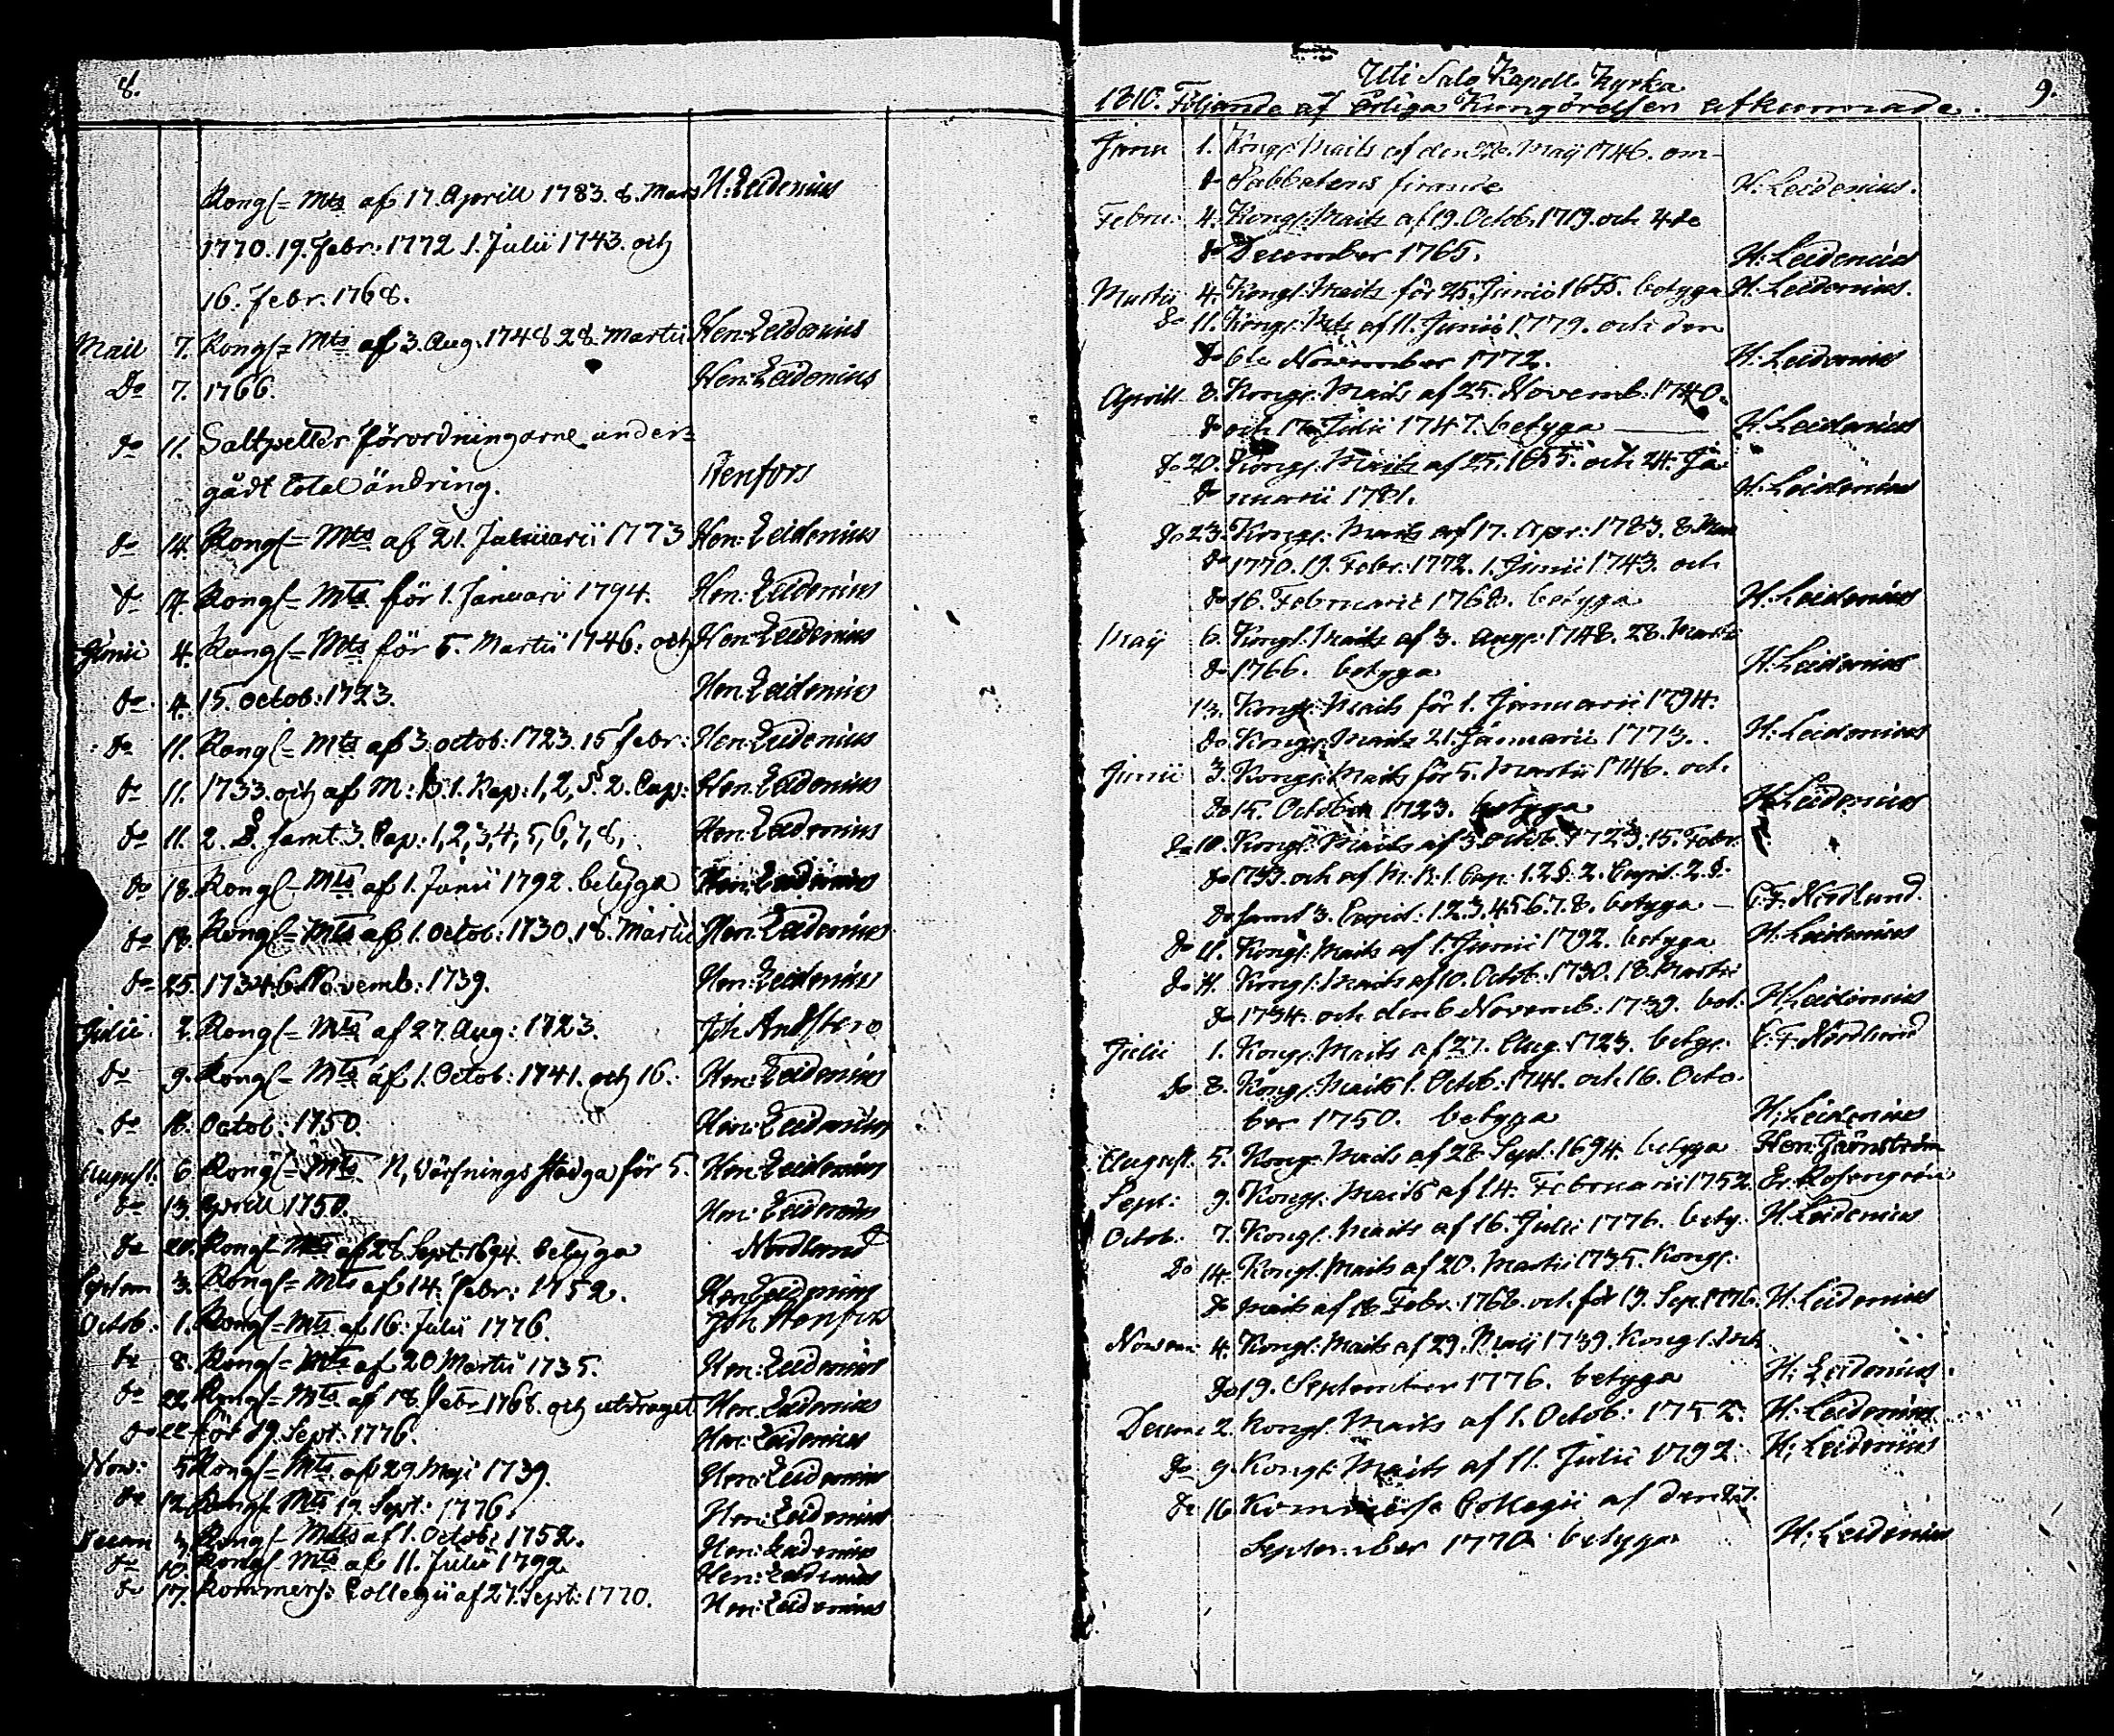 8.
Kongl= Mts af 17. Aprill 1783. 8. Mars H: Leidenius
1770. 19. Febr: 1772 1. Julii 1743. och
16. Febr. 1768.
Maii 7. Kongl= Mts af 3. Aug. 1748 28. Martii Hen: Leidenius
Do 7. 1766. Hen: Leidenius
do 11. Saltpetter förordningarne under-
gådt total ändring. Renfors
do 14. Kongl= Mts af 21. Januarii 1773 Hen: Leidenius
do 17. Kongl= Mts för 1. Januari 1794. Hen: Leidenius
Junii 4. Kongl= Mts för 5. Martii 1746. och Hen: Leidenius
do 4. 15. Octob: 1723. Hen: Leidenius
do 11. Kongl= Mts af 3. octob: 1723. 15 Febr: Hen: Leidenius
do 11. 1733. och af M: B. 1. Kap: 1, 2, §. 2. Cap: Hen: Leidenius
do 11. 2. §. samt. 3. Cap: 1, 2, 3, 4, 5, 6, 7, 8, Hen: Leidenius
do 18. Kongl= Mts af 1. Junii 1792. betyga Hen: Leidenius
do 18. Kongl= Mts af 1. Octob: 1730. 18. Martii Hen: Leidenius
do 25. 1734. 6. Novemb: 1739. Hen: Leidenius
Julii 2. Kongl= Mts af 27. Aug: 1723. Joh
do 9. Kongl= Mts af 1. Octob: 1741. och 16. Hen: Leidenius
do 16. Octob: 1750. Hen: Leidenius
August. 6 Kongl= Mts för 5. Hen: Leidenius
do 13. Aprill 1750. Hen: Leidenius
do 20. Kongl= Mts af 28. Sept: 1694. betyga Nordlund
Septem 3. Kongl= Mts af 14. Febr: 1752. Hen: Leidenius
Octob: 1. Kongl= Mts af 16. Julii 1776. Joh Renfors
do 8. Kongl= Mts af 20 Martii 1735. Hen: Leidenius
do 22. Kongl= Mts af 18. Febr 1768. och utdraget Hen: Leidenius
do 22 för 19. Sept: 1776. Hen: Leidenius
Nov: 5 Kongl= Mts af 29. Maji 1739. Hen: Leidenius
do 12. Kongl= Mts 19. Sept: 1776. Hen: Leidenius
Decem 3. Kongl= Mts af 1. Octob: 1752. Hen: Leidenius
do 10. Kongl= Mts af 11. Julii 1792 Hen: Leidenius
do 17. Kommers: Collegii af 27. Sept: 1770. Hen: Leidenius
9.
Uti Salo Kapell Kyrka
1810. Följande af årliga Kungörelsen afkunnade.
Janu 1. Kongl: Maits af den Maij 1746. om
do Sabbatens firande H: Leidenius.
Febru: 4. Kongl: Maits af 19. Octob. 1719. och 4de
do December 1765. H: Leidenius
Martii 4. Kongl: Maits för 25. Junii 1655. betyga H: Leidenius.
do 11. Kongl: Mts af 11. Junii 1779. och den
do 6te November 1772. H: Leidenius
Aprill 8. Kongl: Maits af 25. Novemb: 1740.
do och 17. Julii 1747. betyga H: Leidenius
do 20. Kongl: Maits af 25. 1655. och 24. Ja-
do nuarii 1781. H: Leidenius
do 23. Kongl: Maits af 17. Apr: 1783. 8. Mars
do 1770. 19. Febr: 1772. 1. Junii 1743. och
do 16. Februarii 1768. betyga H: Leidenius
Maij 6. Kongl: Maits af 3. Aug: 1748. 28. Martii
do 1766. betyga H: Leidenius
13. Kongl: Maits för 1. Januarii 1794.
do Kongl: Maits 21. Januarii 1773. H: Leidenius
Junii 3. Kongl: Maits för 5. Martii 1746. och
do 15. October 1723. betyga H: Leidenius
do 10. Kongl: Maits af 3. octob: 1723. 15. Febr:
do 1733. och af M. B. 1. Cap. 1. 2 §. 2. Capit. 2. §.
do samt 3. Capit: 1. 2. 3. 4. 5 6. 7. 8. betyga C. F. Nordlund
do 11. Kongl: Maits af 1. Junii 1792. betyga H: Leidenius
do 11. Kongl: Maits af 10. Octob. 1730. 18. Martii
do 1734. och den 6 Novemb: 1739. bet: H: Leidenius
Julii 1. Kongl: Maits af 27. Aug. 1723. betyg: C. F. Nordlund
do 8. Kongl: Maits 1. Octob: 1741. och 16. Octo-
ber 1750. betyga H: Leidenius
August. 5. Kongl: Maits af 28 Sept: 1694. betyga
Sept: 9. Kongl: Maits af 14. Februarii 1752. Er. Rosengren
Octob. 7. Kongl: Maits af 16. Julii 1776. bety. H. Leidenius
do 14. Kongl. Maits af 20. Martii 1735. Kongl:
do Maits af 18 Febr: 1768. och för 19. Sep. 1776. H: Leidenius
Novem: 4. Kongl: Maits af 29. Maij 1739. Kongl.
do 19. September 1776. betyga H: Leidenius
Decem: 2. Kongl. Maits af 1. Octob: 1752. H: Leidenius
do 9. Kongl: Maits af 11. Julii 1792. H: Leidenius
do 16. Kommerse Collegii af den 27.
September 1770 betyga H: Leidenius